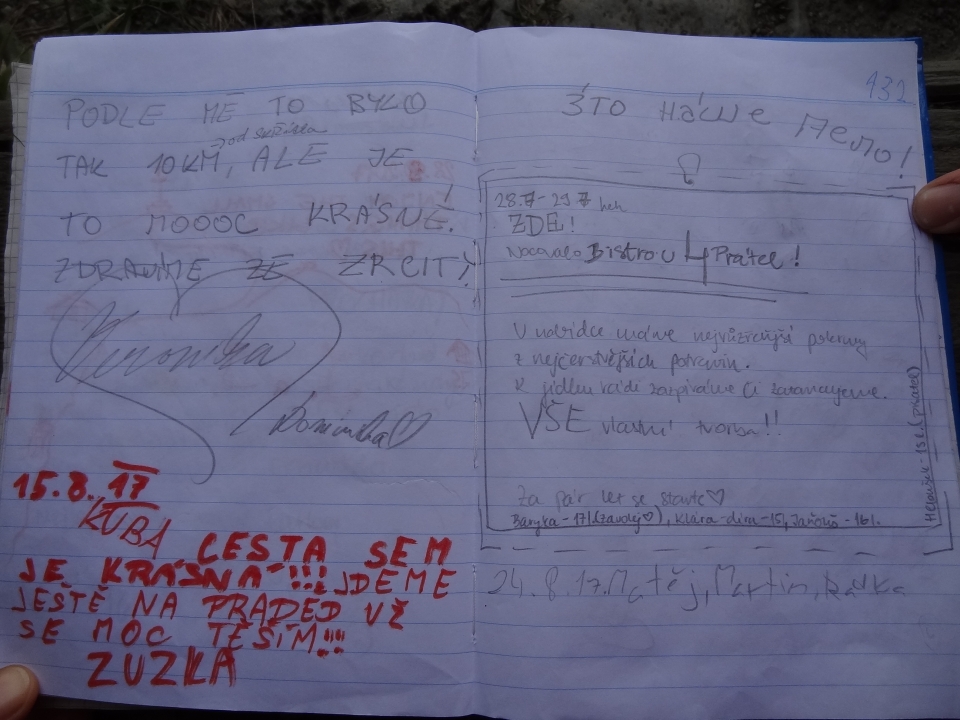 PODLE MĚ TO BYLO
TAK 10KM, ALE JE
TO MOOOC KRÁSNÉ!
ZDRAVÍME ZE ZRCITY
Veronika
Dominika
15.8.17
KUBA
CESTA SEM
JE KRÁSNÁ!!! JDEME
JEŠTĚ NA PRADĚD UŽ
SE MOC TĚŠÍM!!!
ZUZKA
132
ЭТО НАШЕ ЛЕЛО!
28.7-29.7 heh
ZDE!
Nocovalo Bistro U 4 Přátel!
V nabídce máme nejrůznější pokrmy
z nejčerstvějších potravin.
K jídlu rádi zazpíváme či zatancujeme.
VŠE vlastní tvorba!!
Za pár let se stavte♡
Baryka-17l (zavolej♡), Klára-dím-15,
24.8.17. Matěj, Martin, Radka